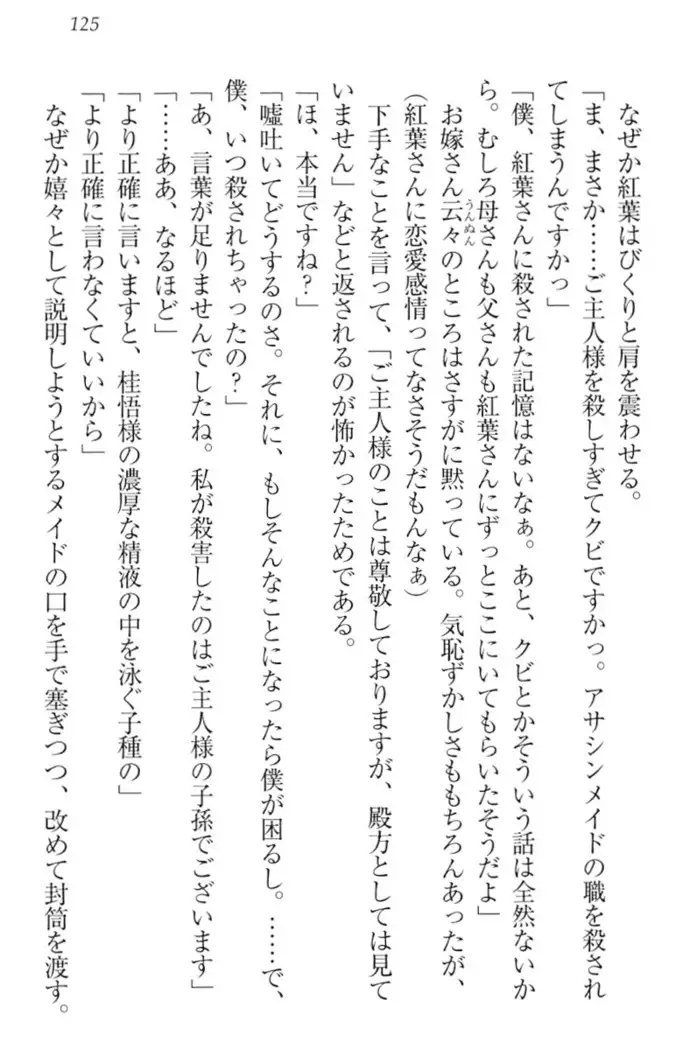 125
なぜか紅葉はびくりと肩を震わせる。
「ま、まさか……ご主人様を殺しすぎてクビですかっ。アサシンメイドの職を殺され
てしまうんですかっ」
「僕、紅葉さんに殺された記憶はないなぁ。あと、クビとかそういう話は全然ないか
ら。むしろ母さんも父さんも紅葉さんにずっとここにいてもらいたそうだよ」
お嫁さん云々のところはさすがに黙っている。気恥ずかしさももちろんあったが、
うんぬん
(紅葉さんに恋愛感情ってなさそうだもんなぁ)
下手なことを言って、「ご主人様のことは尊敬しておりますが、殿方としては見て
いません」などと返されるのが怖かったためである。
「ほ、本当ですね?」
「嘘吐いてどうするのさ。それに、もしそんなことになったら僕が困るし。……で、
僕、いつ殺されちゃったの?」
「あ、言葉が足りませんでしたね。私が殺害したのはご主人様の子孫でございます」
「……ああ、なるほど」
「より正確に言いますと、桂悟様の濃厚な精液の中を泳ぐ子種の」
「より正確に言わなくていいから」
なぜか嬉々として説明しようとするメイドの口を手で塞ぎつつ、改めて封筒を渡す。